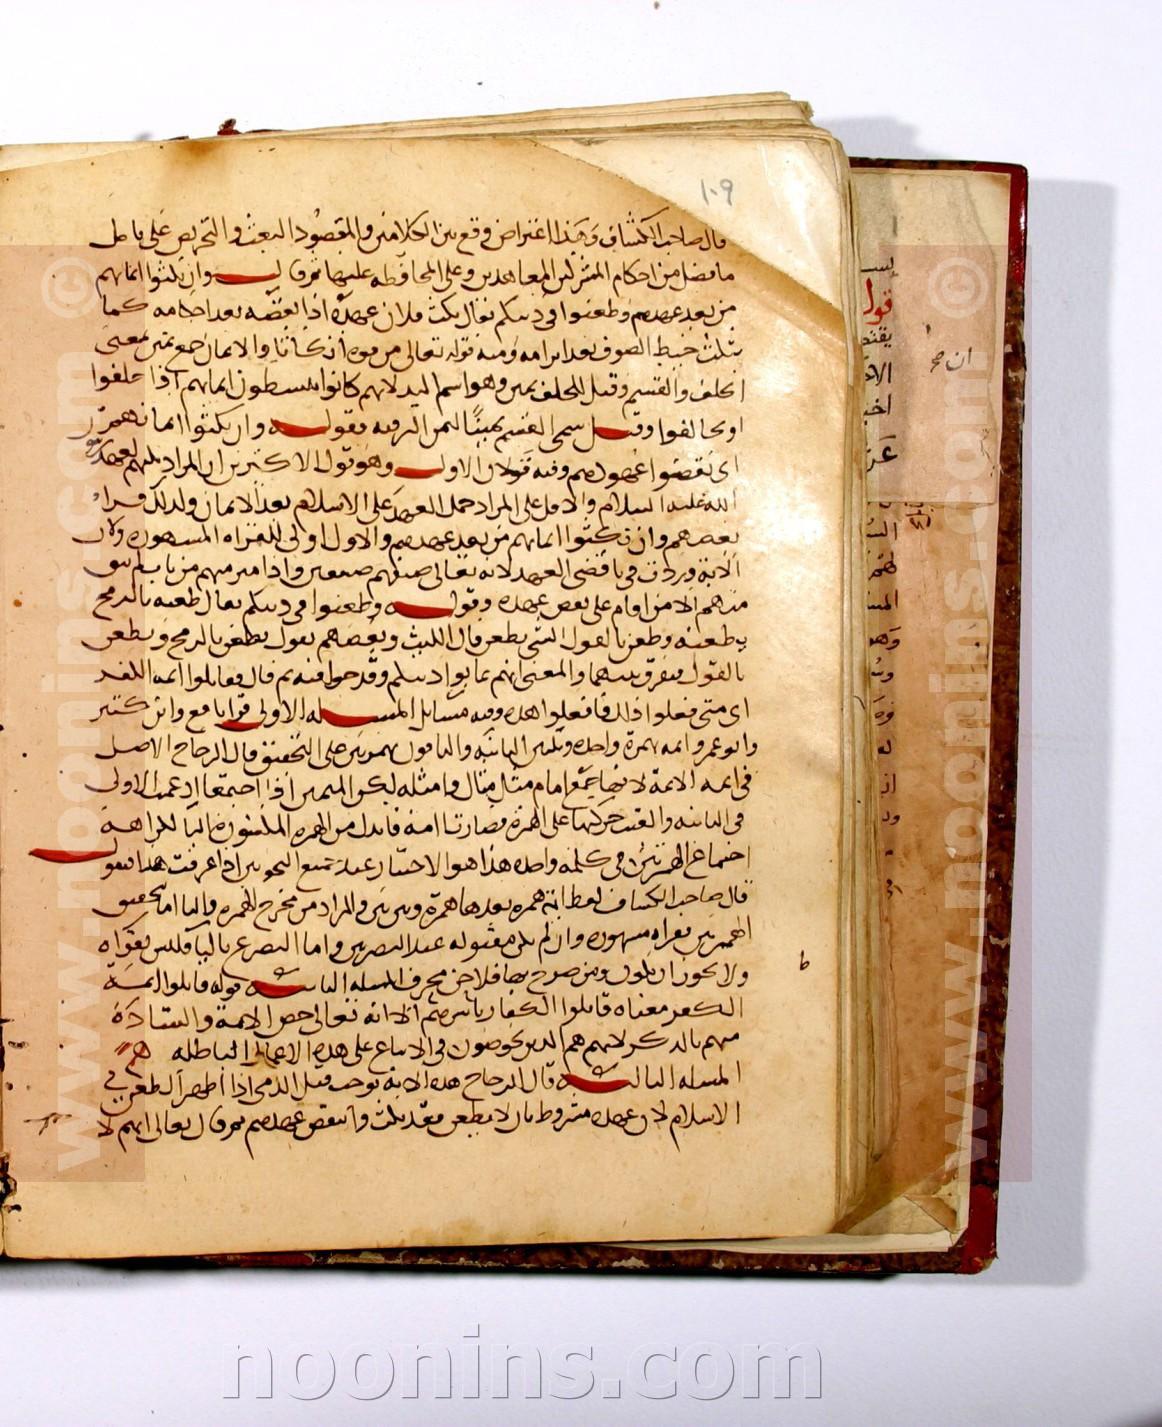 ١٠٩
قال صاحب الكشاف وهذا اعتراض وقع بين الكلامين والمقصود البعث والتحريض على تامل
ما فصل من احكام المشركين المعاهدين وعلى المحافظة عليها ثم قال وان نكثوا ايمانهم
من بعد عهدهم وطعنوا في دينكم يقال نكث فلان عهده اذا نقضه بعد احكامه كما
ينكث خيط الصوف بعد ابرامه ومنه قوله تعالى من قوة انكاثا والايمان جمع يمين بمعنى
الحلف والقسم وقيل للحلف يمين وهو اسم اليد لانهم كانوا يبسطون ايمانهم اذا حلفوا
او تحالفوا وقيل سمى القسم يمينا ليمن البر فيه فقوله وان نكثوا ايمانهم
اى نقضوا عهودهم وفيه قولان الاول وهو قول الاكثرين ان المراد نكثهم لعهد
الله عليه السلام والا حمل على المراد حمل العهد على الاسلام بعد الايمان ولذلك قراء
بعضهم وان نكثوا ايمانهم من بعد عهدهم والاول اولى للقراة المشهورة ولان
الاية وردت في ناقضى العهد لانه تعالى صنفهم صنفين واذا ميز منهم من تاب لم يبق
منهم الا من اقام على نقض عهده وقوله وطعنوا في دينكم يقال طعنه بالرمح
يطعنه وطعن بالقول السئ يطعن قال الليث وبعضهم يقول يطعن بالرمح ويطعن
بالقول فيفرق بينهما والمعنى انهم عابوا دينكم وقدحوا فيه ثم قال فقاتلوا ائمة الكفر
اى متى فعلوا ذلك فافعلوا هذا وفيه مسايل المسئله الاولى قرا نافع وابن كثير
وابو عمرو ائمة بهمزة واحدة وتليين الثانية والباقون بهمزتين على التحقيق قال الزجاج الاصل
في ائمة الاممة لانها جمع امام مثل مثال وامثلة لكن الميمين اذا اجتمعتا ادغمت الاولى
في الثانية والقيت حركتها على الهمزة فصارت اامة فابدل من الهمزة المكسورة الياء لكراهة
اجتماع الهمزتين في كلمة واحدة هذا هو الاختيار عند جميع النحويين اذا عرفت هذا فنقول
قال صاحب الكشاف لفظة ائمة همزة بعدها همزة وبين بين والمراد من مخرج الهمزة والياء اما تحقيق
الهمزتين فقراة مشهورة وان لم تكن مقبولة عند البصريين واما التصريح بالياء فليس بقراة
ولا يجوز ان تكون ومن صرح بها فلاحن محرف المسلة الثانية قوله قاتلوا ائمة
الكفر معناه قاتلوا الكفار باسرهم الا انه تعالى خص الايمة والسادة
منهم بالذكر لانهم هم الذين يحرضون في الاتباع على هذه الاعمال الباطله
المسله الثالثة قال الزجاج هذه الاية توجب قتل الذمى اذا اظهر الطعن في
الاسلام لان عهده مشروط بان لا يطعن فقد نكث وانتقض عهدهم ثم قال تعالى انهم لا
ط
قول
noonins.com
© www.noonins.com
© www.noonins.com